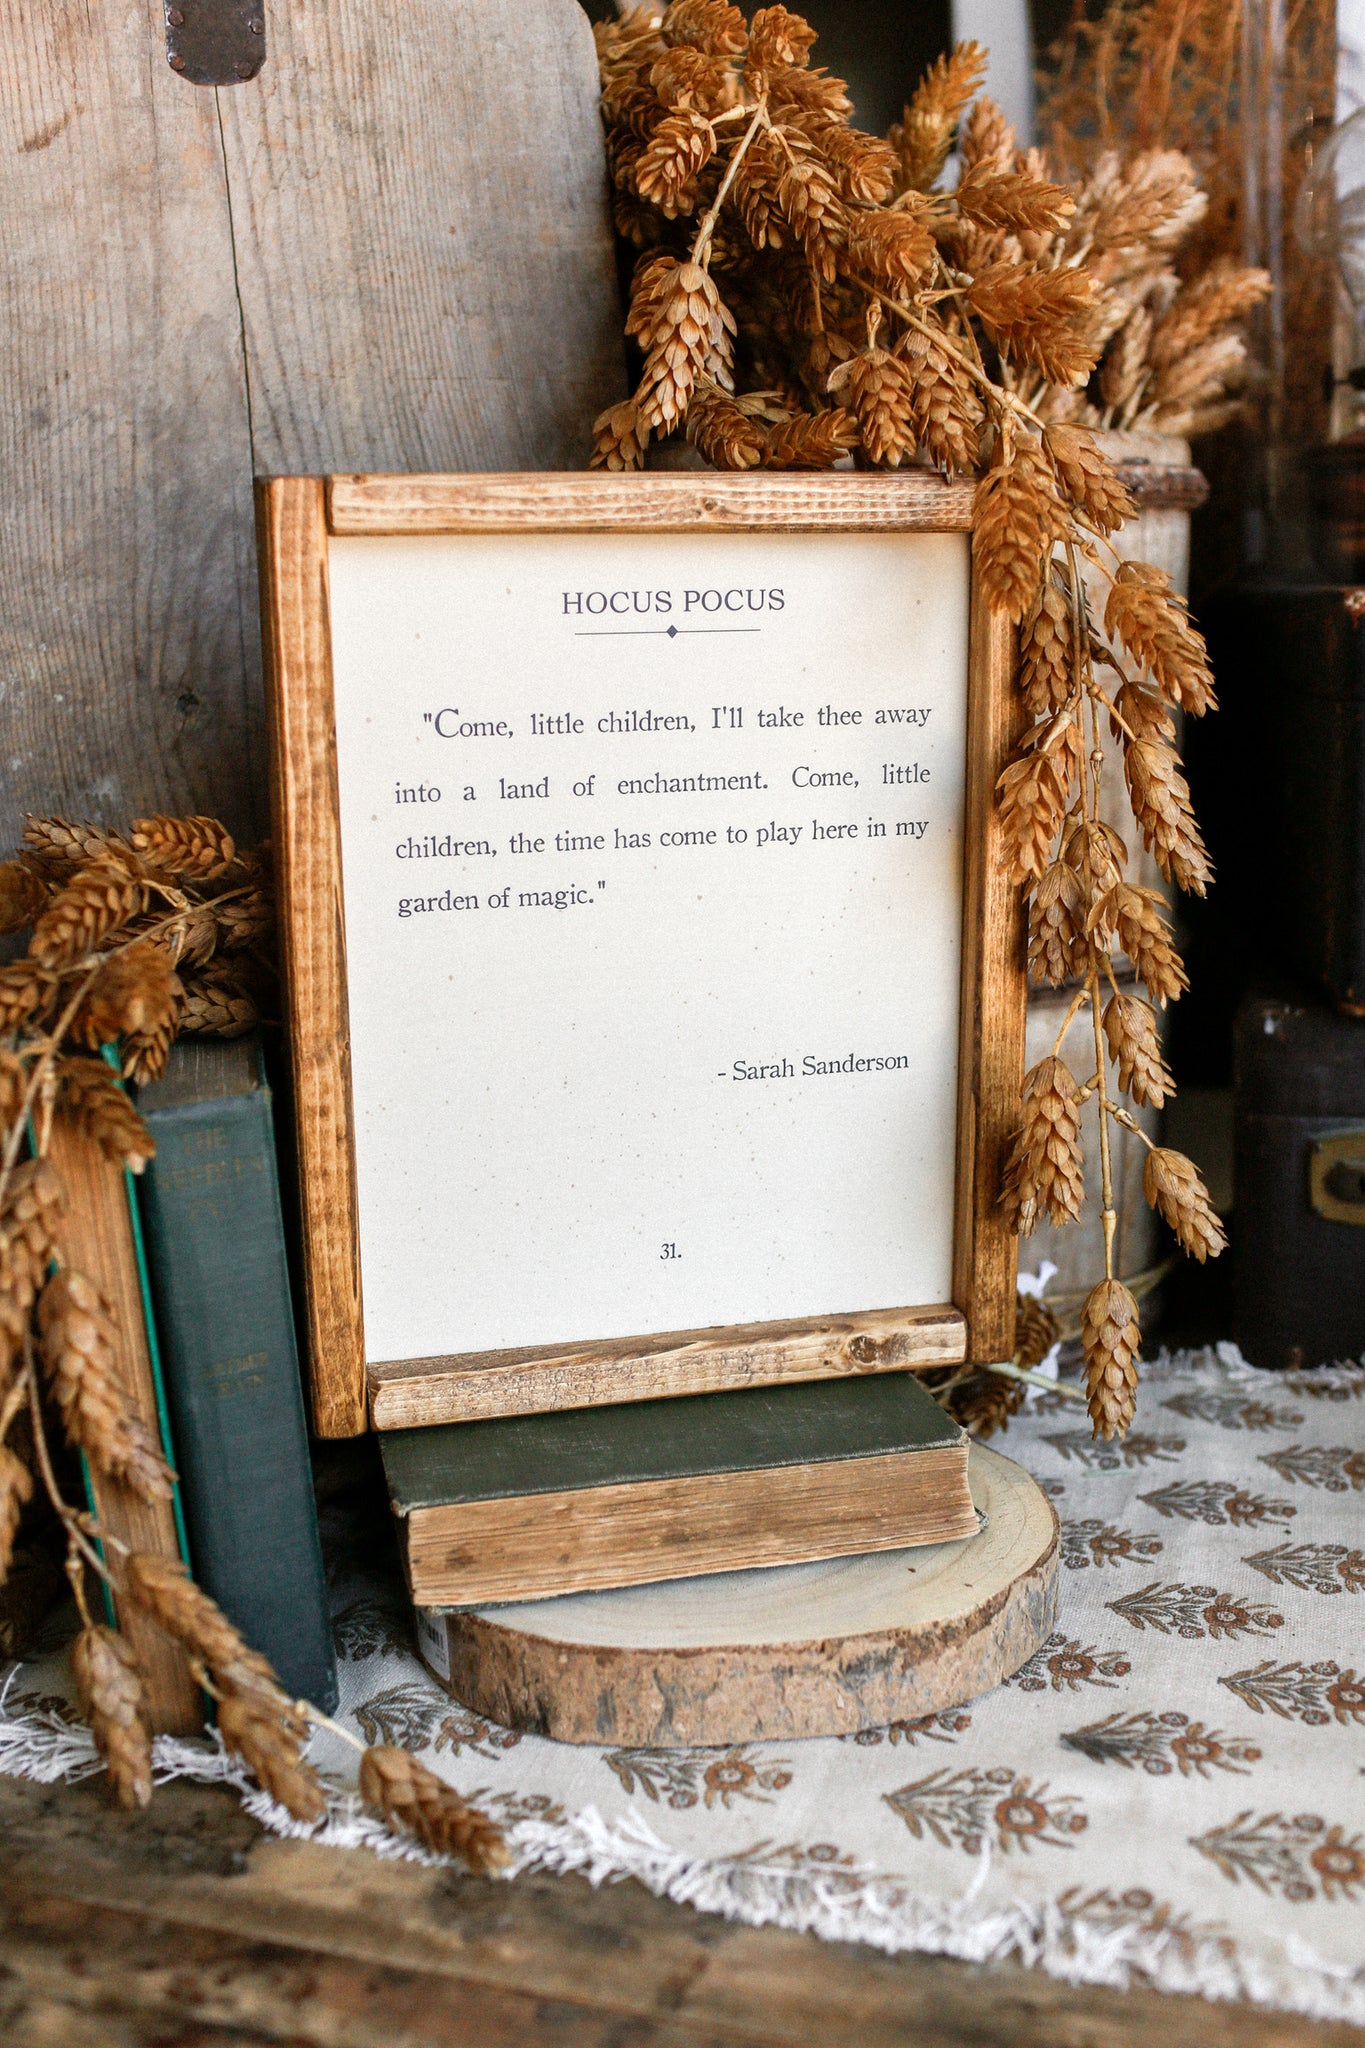 HOCUS POCUS
"Come, little children, I'll take thee away
into a land of enchantment. Come, little
children, the time has come to play here in my
garden of magic."
- Sarah Sanderson
31.
THE